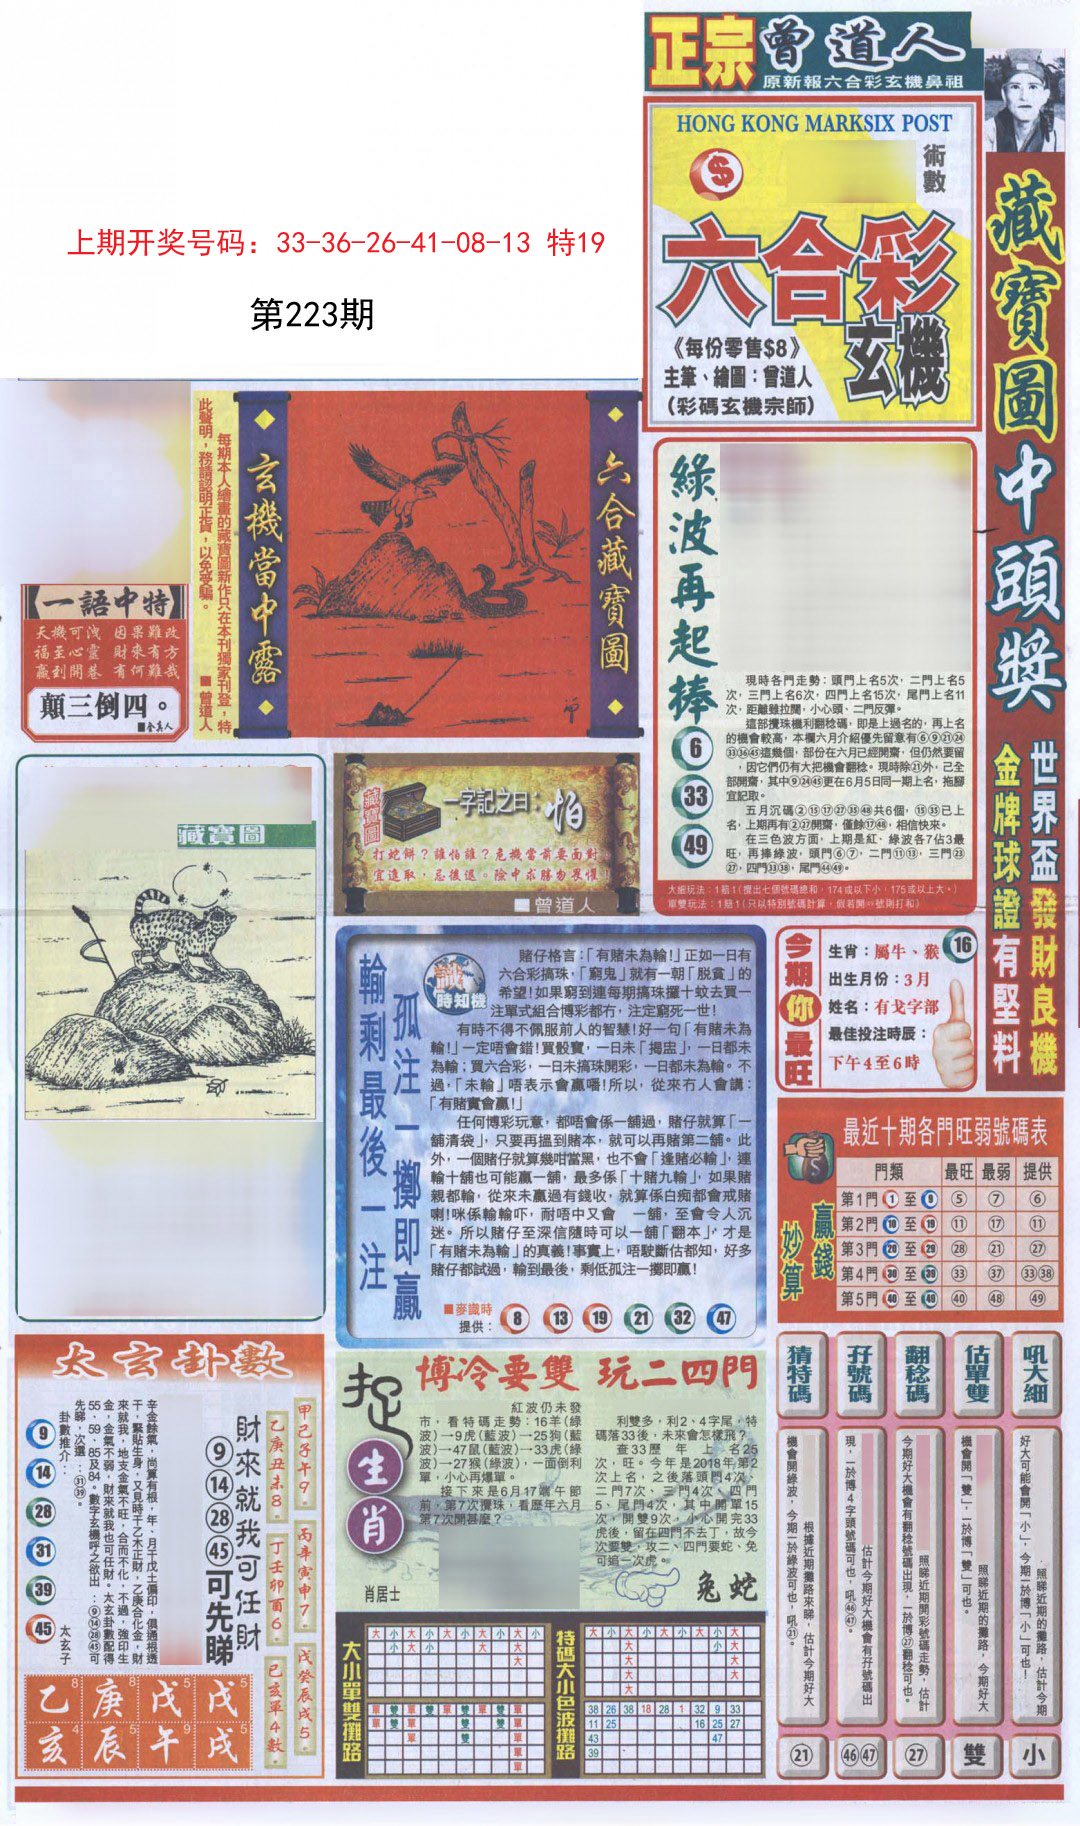 正宗曾道人
原新報六合彩玄機鼻祖
HONG KONG MARKSIX POST
術數
六合彩
玄機
《每份零售$8》
主筆、繪圖：曾道人
（彩碼玄機宗師）
藏寶圖中頭獎
世界盃發財良機
金牌球證有堅料
上期开奖号码：33-36-26-41-08-13 特19
第223期
六合藏寶圖
玄機當中露
每期本人繪畫的藏寶圖新作只在本刊獨家刊登，特
此聲明，務請認明正貨，以免受騙。
■曾道人
【一語中特】
天機可洩 因果難改
福至心靈 財來有方
贏到開巷 有何難哉
顛三倒四。
綠波再起捧
6
33
49
現時各門走勢：頭門上名5次，二門上名5
次，三門上名6次，四門上名15次，尾門上名11
次，距離雖拉闊，小心頭、二門反彈。
這部攪珠機利翻稔碼，即是上過名的，再上名
的機會較高，本欄六月介紹優先留意有⑥⑨㉑㉔
㉝㊱㊺這幾個，部份在六月已經開齋，但仍然要留
，因它們仍有大把機會翻稔。現時除㉑外，已全
部開齋，其中⑨㉔㊺更在6月5日同一期上名，拖腳
宜記取。
五月沉碼②⑮⑰㉗㉟㊽共6個，⑮㉟已上
名，上期再有②㉗開齋，僅餘⑰㊽，相信快來。
在三色波方面，上期是紅、綠波各7佔3最
旺，再捧綠波，頭門⑥⑦，二門⑪⑬，三門㉓
㉗，四門㉝㊳，尾門㊹㊾。
大細玩法：1賠1（攪出七個號碼總和，174或以下小，175或以上大。）
藏寶圖
藏寶圖
一字記之曰：怕
打蛇餅？誰怕誰？危機當前要面對
宜進取，忌後退。險中求勝勿畏懼！
■曾道人
輸剩最後一注
孤注一擲即贏
識時知機
賭仔格言：「有賭未為輸！」正如一日有
六合彩搞珠，「窮鬼」就有一朝「脫貧」的
希望！如果窮到連每期搞珠攞十蚊去買一
注單式組合博彩都冇，注定窮死一世！
有時不得不佩服前人的智慧！好一句「有賭未為
輸！」一定唔會錯！買骰寶，一日未「揭盅」，一日都未
為輸；買六合彩，一日未搞珠開彩，一日都未為輸。不
過，「未輸」唔表示會贏噃！所以，從來冇人會講：
「有賭實會贏！」
任何博彩玩意，都唔會係一舖過，賭仔就算「一
舖清袋」，只要再搵到賭本，就可以再賭第二舖。此
外，一個賭仔就算幾咁當黑，也不會「逢賭必輸」，連
輸十舖也可能贏一舖，最多係「十賭九輸」，如果賭
親都輸，從來未贏過有錢收，就算係白痴都會戒賭
喇！咪係輸輸吓，耐唔中又會 一舖，至會令人沉
迷。所以賭仔至深信隨時可以一舖「翻本」，才是
「有賭未為輸」的真義！事實上，唔駛斷估都知，好多
賭仔都試過，輸到最後，剩低孤注一擲即贏！
■麥識時
提供：
8 13 19 21 32 47
今期你最旺
生肖：屬牛、猴
16
出生月份：3月
姓名：有戈字部
最佳投注時辰：
下午4至6時
最近十期各門旺弱號碼表
贏錢妙算
門類 最旺 最弱 提供
第1門 1 至 9 ⑤ ⑦ ⑥
第2門 10 至 19 ⑪ ⑰ ⑪
第3門 20 至 29 ㉘ ㉑ ㉗
第4門 30 至 39 ㉝ ㊲ ㉝㊳
第5門 40 至 49 ㊵ ㊽ ㊾
太玄卦數
甲己子午9．
乙庚丑未8．
丙辛寅申7．
丁壬卯酉6．
戊癸辰戌5．
巳亥單4數．
財來就我可任財
⑨⑭㉘㊺可先睇
辛金餘氣，尚算有根，年、月干戊土偏印，俱通根透
干，緊貼生身，又見時干乙木正財，乙庚合化金，財
來就我，地支金氣不旺，合而不化，不過，強印生
金，金氣不弱，財來就我也可任財。太玄卦數配得
55、59、85及84。數字玄機呼之欲出：⑨⑭㉘㊺可
先睇，次選：㉛㊴。
卦數推介：
9
14
28
31
39
45
太玄子
乙8 庚8 戊5 戊5
亥4 辰5 午9 戌5
捉生肖
博冷要雙 玩二四門
紅波仍未發
市，看特碼走勢：16羊(綠
波)→9虎(藍波)→25狗(藍
波)→47鼠(藍波)→33虎(綠
波)→27猴(綠波)，一面倒利
單，小心再爆單。
接下來是6月17端午節
前，第7次攪珠，看歷年六月
第7次開甚麼？
利雙多，利2、4字尾，特
碼落33後，未來會怎樣飛？
查33歷年上名25
次，旺。今年是2018年第2
次上名，之後落頭門4次，
二門7次、三門4次、四門
5、尾門4次，其中開單15
次，開雙9次，小心開完33
虎後，留在四門不去丁，故今
次要雙，攻二、四門要蛇、免
可追一次虎。
肖居士
兔 蛇
大小單雙攤路
特碼大小色波攤路
38 26 38 18 28 1 32 9 33
11 25 16 25 27
43 47
39
猜特碼
根據近期攤路來睇，估計今期好大
機會開綠波，今期一於綠波可也，吼㉑。
㉑
孖號碼
估計今期好大機會有孖號碼出
現，一於博4字頭號碼可也，吼㊻㊼。
㊻㊼
翻稔碼
照睇近期開彩號碼走勢，估計
今期好大機會有翻稔號碼出現，一於博㉗翻稔可也。
㉗
估單雙
照睇近期的攤路，今期好大
機會開「雙」，一於博「雙」可也。
雙
吼大細
照睇近期的攤路，估計今期
好大可能會開「小」，今期一於博「小」可也！
小